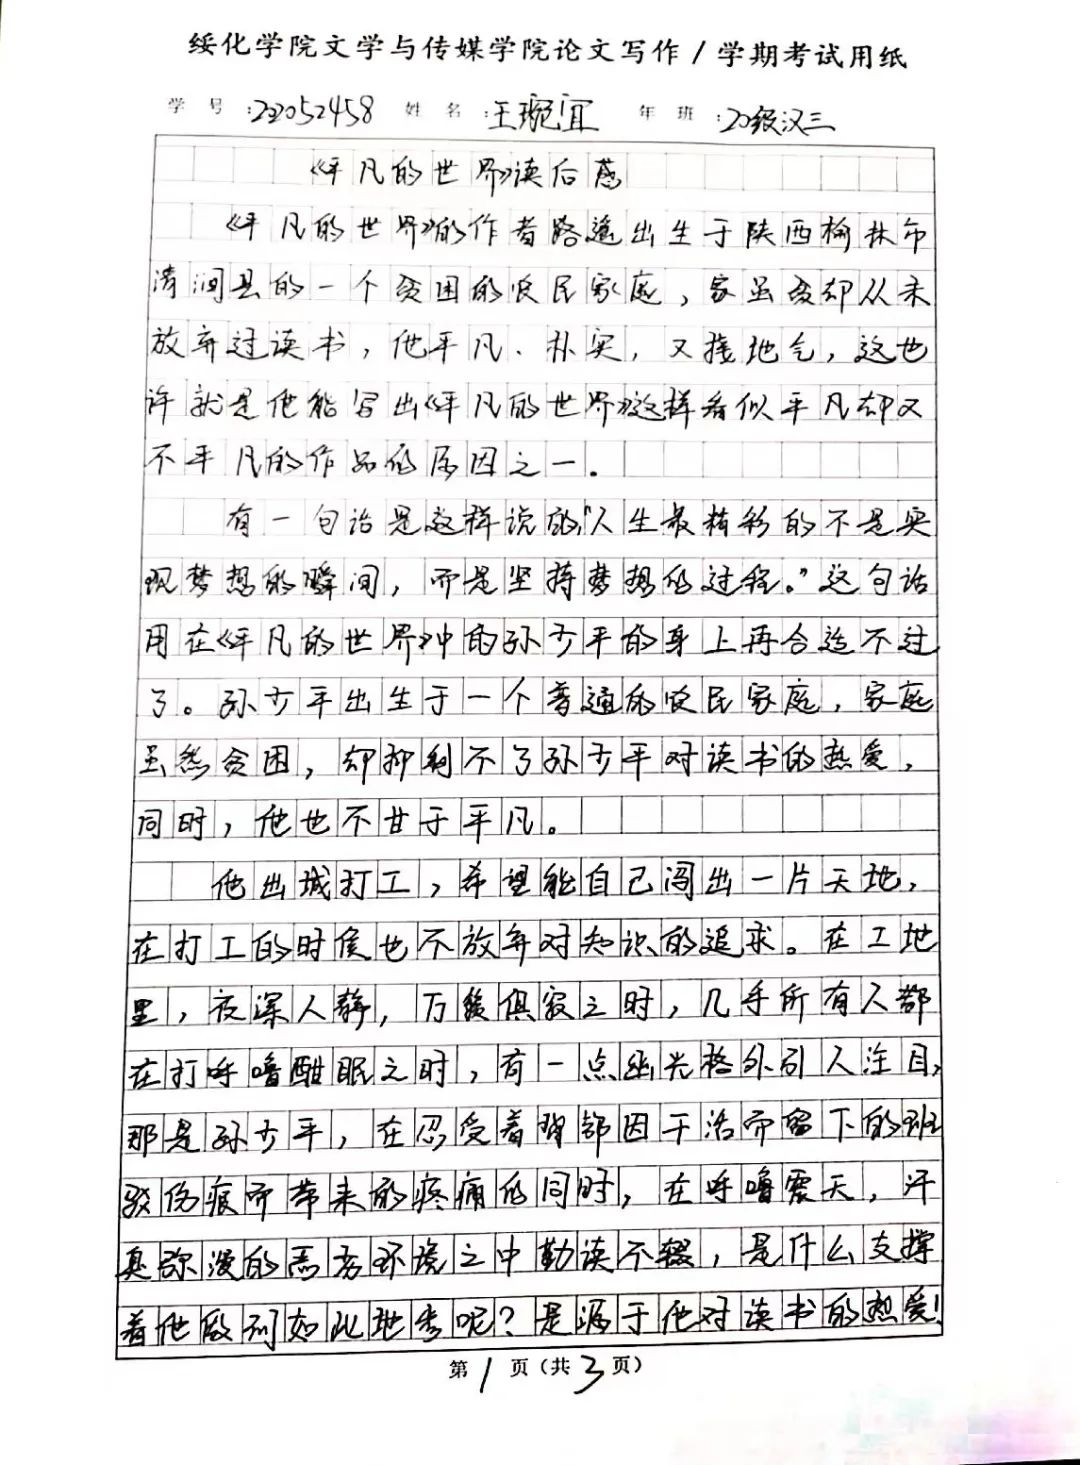 绥化学院文学与传媒学院论文写作/学期考试用纸
学号:22052458 姓名:王琬宜 年班:20级汉三
《平凡的世界》读后感
《平凡的世界》的作者路遥出生于陕西榆林市
清涧县的一个贫困的农民家庭，家虽贫却从未
放弃过读书，他平凡、朴实，又接地气，这也
许就是他能写出《平凡的世界》这样看似平凡却又
不平凡的作品的原因之一。
有一句话是这样说的，“人生最精彩的不是实
现梦想的瞬间，而是坚持梦想的过程。”这句话
用在《平凡的世界》中的孙少平的身上再合适不过
了。孙少平出生于一个普通的农民家庭，家庭
虽然贫困，却抑制不了孙少平对读书的热爱，
同时，他也不甘于平凡。
他出城打工，希望能自己闯出一片天地，
在打工的时候也不放弃对知识的追求。在工地
里，夜深人静，万籁俱寂之时，几乎所有人都
在打呼噜酣眠之时，有一点幽光格外引人注目，
那是孙少平，在忍受着背部因干活而留下的斑
驳伤痕而带来的疼痛的同时，在呼噜震天，汗
臭弥漫的恶劣环境之中勤读不辍，是什么支撑
着他做到如此地步呢？是源于他对读书的热爱！
第1页(共3页)